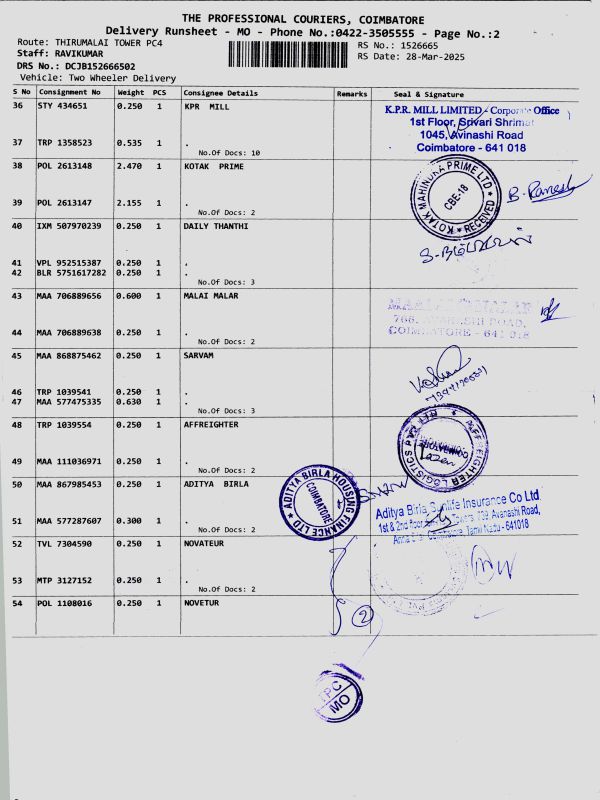 THE PROFESSIONAL COURIERS, COIMBATORE
Delivery Runsheet - MO - Phone No.:0422-3505555 - Page No.:2
Route: THIRUMALAI TOWER PC4
Staff: RAVIKUMAR
DRS No.: DCJB152666502
Vehicle: Two Wheeler Delivery
RS No.: 1526665
RS Date: 28-Mar-2025
S No Consignment No Weight PCS Consignee Details Remarks Seal & Signature
36 STY 434651 0.250 1 KPR MILL
K.P.R. MILL LIMITED - Corporate Office
1st Floor, Srivari Shrimat
1045, Avinashi Road
Coimbatore - 641 018
37 TRP 1358523 0.535 1 .
No.Of Docs: 10
38 POL 2613148 2.470 1 KOTAK PRIME
KOTAK MAHINDRA PRIME LTD
CBE-18
RECEIVED
B. Ramesh
39 POL 2613147 2.155 1 .
No.Of Docs: 2
40 IXM 507970239 0.250 1 DAILY THANTHI
41 VPL 952515387 0.250 1 .
42 BLR 5751617282 0.250 1 .
No.Of Docs: 3
43 MAA 706889656 0.600 1 MALAI MALAR
MAALAI MALAR
766, AVANASHI ROAD,
COIMBATORE - 641 018
44 MAA 706889638 0.250 1 .
No.Of Docs: 2
45 MAA 868875462 0.250 1 SARVAM
46 TRP 1039541 0.250 1 .
47 MAA 577475335 0.630 1 .
No.Of Docs: 3
48 TRP 1039554 0.250 1 AFFREIGHTER
AFFREIGHTER LOGISTICS PVT LTD
49 MAA 111036971 0.250 1 .
No.Of Docs: 2
50 MAA 867985453 0.250 1 ADITYA BIRLA
ADITYA BIRLA HOUSING FINANCE LTD
COIMBATORE
Aditya Birla Sunlife Insurance Co Ltd
1st & 2nd floor 739, Avanashi Road,
Coimbatore, Tamil Nadu - 641018
51 MAA 577287607 0.300 1 .
No.Of Docs: 2
52 TVL 7304590 0.250 1 NOVATEUR
53 MTP 3127152 0.250 1 .
No.Of Docs: 2
54 POL 1108016 0.250 1 NOVETUR
2
PC
MO